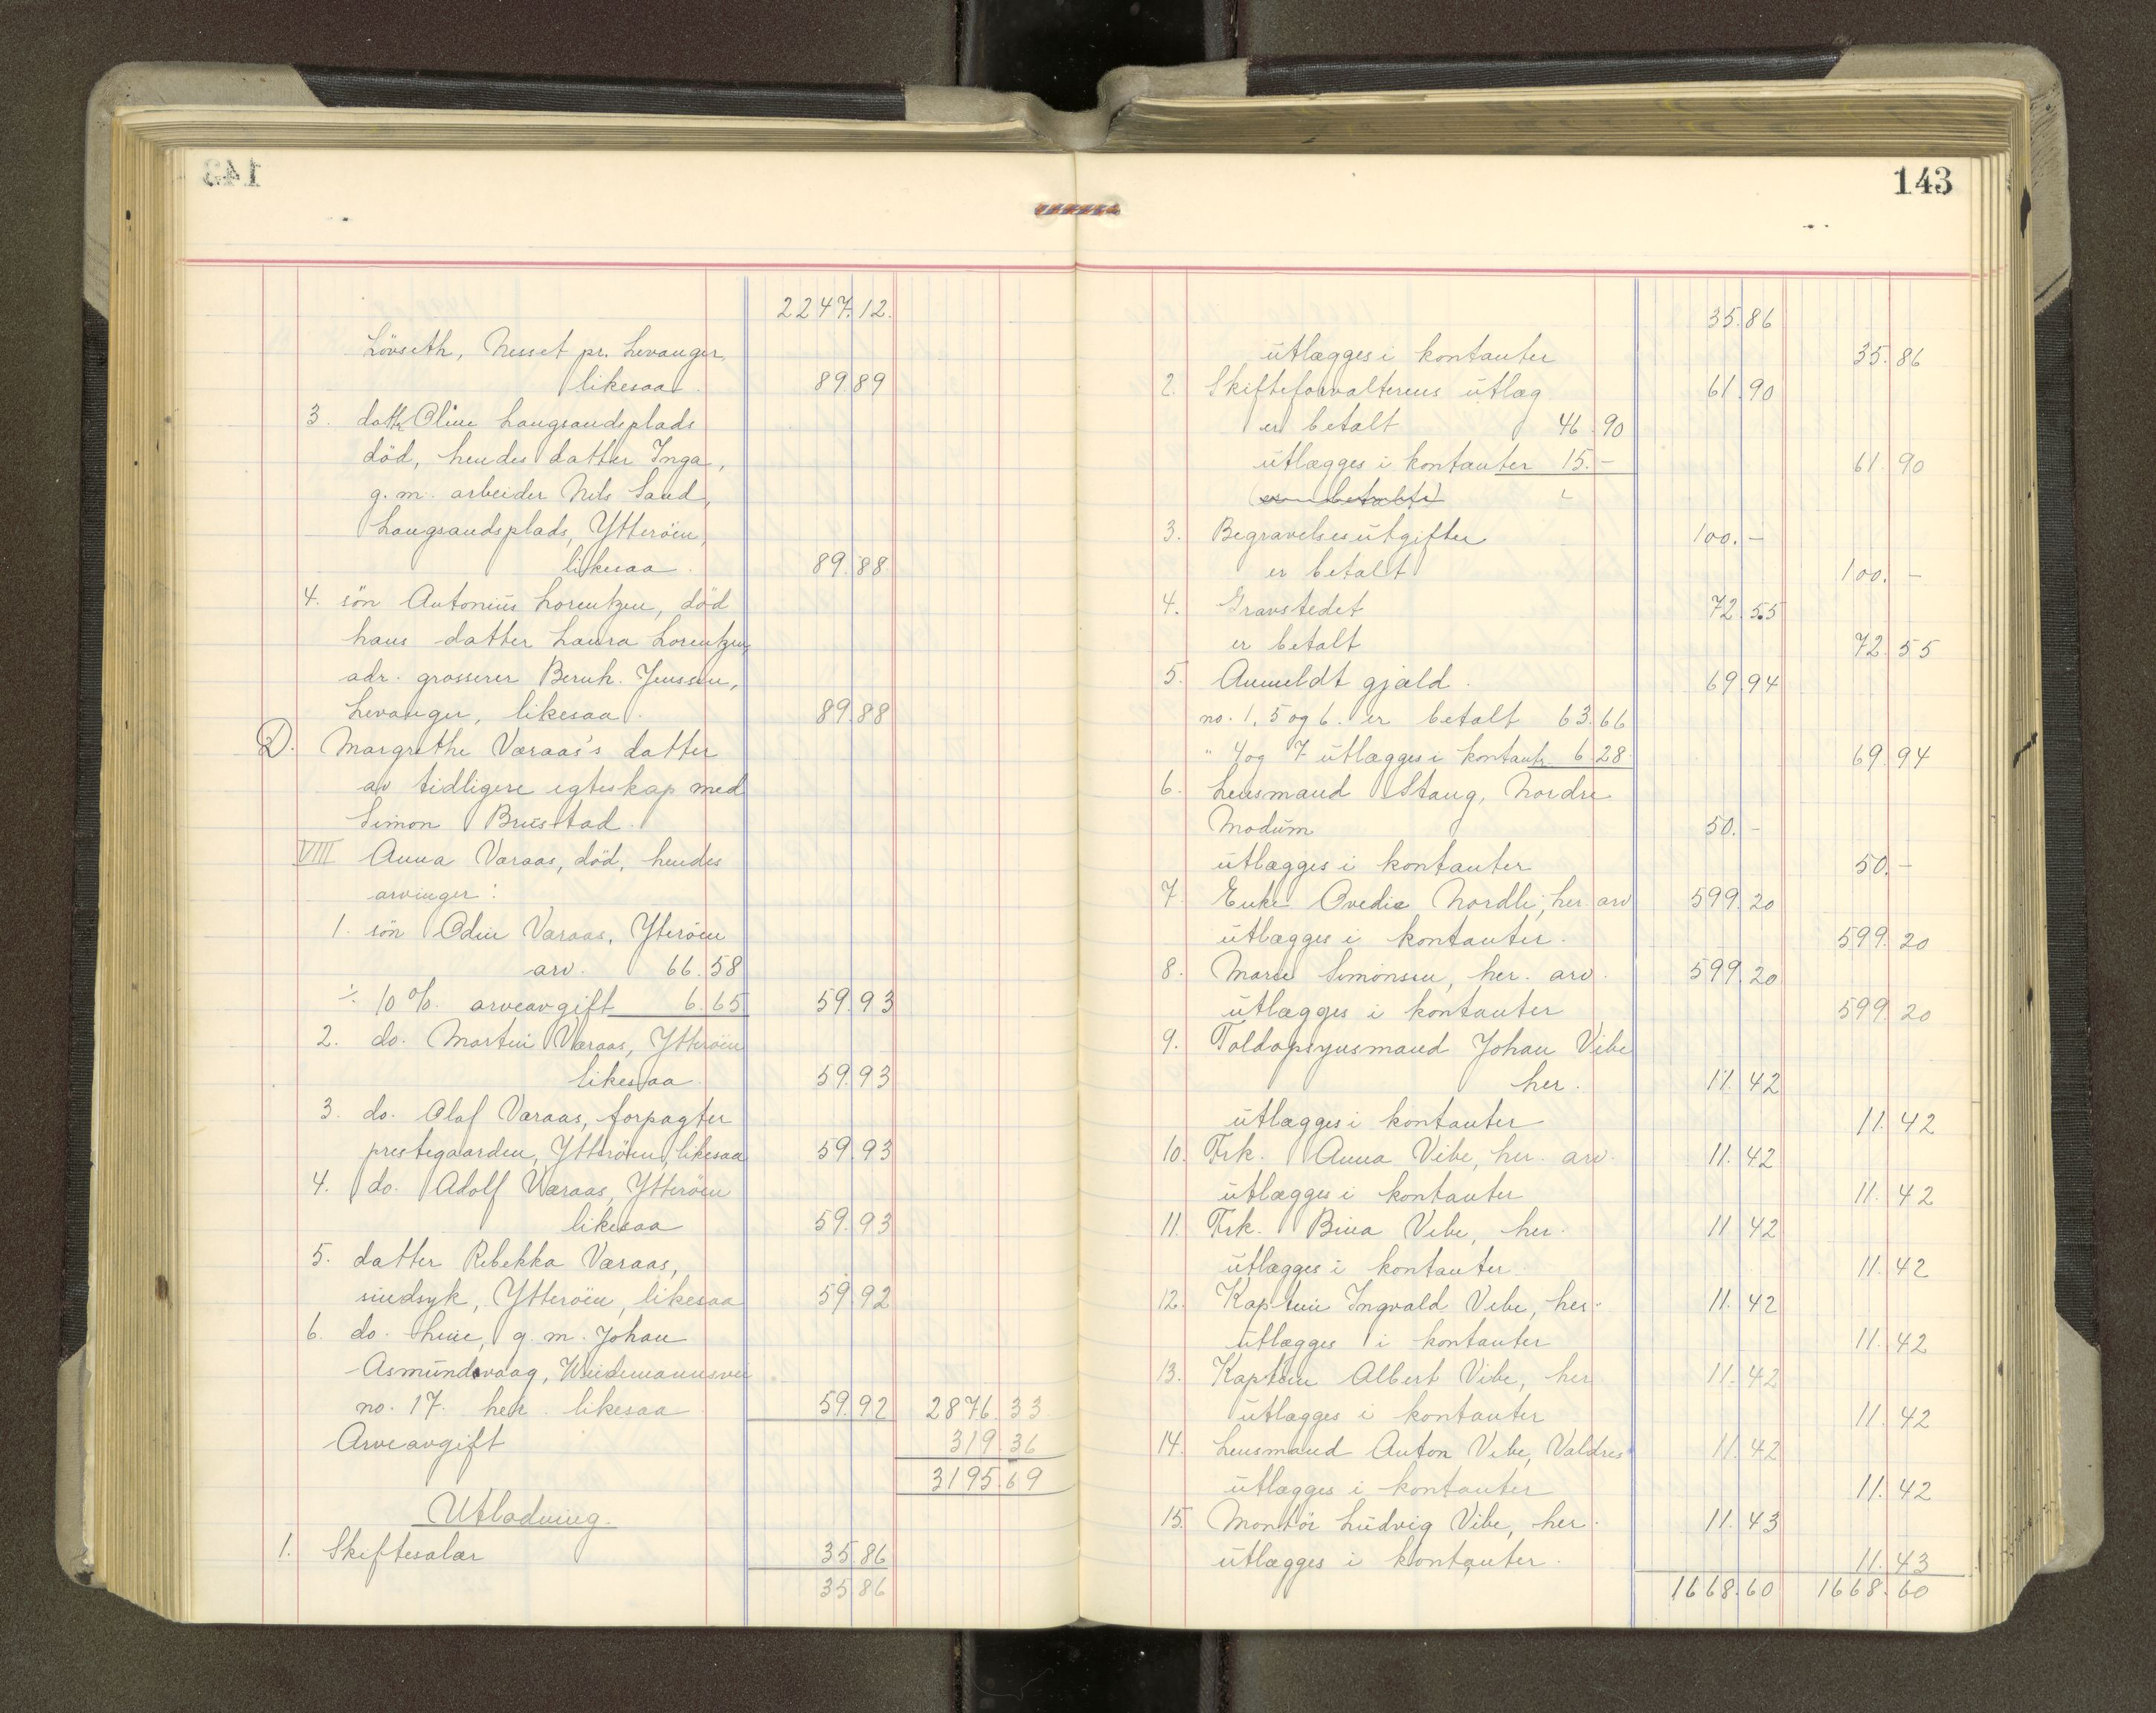 143
2247.12.
Lövseth, Nesset pr. Levanger,
likesaa. 89.89
3. dattr Oline Langsandsplads
död, hendes datter Inga,
g. m. arbeider Nils Sand,
Langsandsplads, Ytterøen,
likesaa. 89.88.
4. sön Antonius Lorentzen, död
hans datter Laura Lorentzen,
adr. grosserer Bernh. Jenssen,
Levanger, likesaa. 89.88
D. Margrethe Væraas's datter
av tidligere egteskap med
Simon Brustad.
VIII Anna Væraas, död, hendes
arvinger:
1. sön Odin Væraas, Yterøen
arv. 66.58
÷ 10 %. arveavgift 6.65 59.93
2. do. Martin Væraas, Ytterøen
likesaa. 59.93
3. do. Olaf Væraas, forpagter
prestegaarden, Ytterøen, likesaa 59.93
4. do. Adolf Væraas, Ytterøen
likesaa 59.93
5. datter Rebekka Væraas,
sindsyk, Ytterøen, likesaa 59.92
6. do. Line, g. m. Johan
Asmundvaag, Weidemannsvei
no. 17. her. likesaa 59.92 2876.33
Arveavgift 319.36
3195.69
Utlodning.
1. Skiftesalær 35.86
35.86
143
35.86
utlægges i kontanter 35.86
2. Skifteforvalterens utlæg 61.90
er betalt 46.90
utlægges i kontanter 15.- 61.90
(er betalt)
3. Begravelsesutgifter 100.-
er betalt 100.-
4. Gravstedet 72.55
er betalt 72.55
5. Anmeldt gjæld. 69.94
no. 1, 5 og 6. er betalt 63.66
" 4 og 7 utlægges i kontantr. 6.28. 69.94
6. Lensmand Stang, Nordre
Modum 50.-
utlægges i kontanter 50.-
7. Enke Ovedie Nordli, her. arv 599.20
utlægges i kontanter. 599.20
8. Marie Simonsen, her. arv. 599.20
utlægges i kontanter 599.20
9. Toldopsynsmand Johan Vibe
her. 11.42
utlægges i kontanter 11.42
10. Frk. Anna Vibe, her. arv. 11.42
utlægges i kontanter 11.42
11. Frk. Bina Vibe, her. 11.42
utlægges i kontanter. 11.42
12. Kaptein Ingvald Vibe, her. 11.42
utlægges i kontanter 11.42
13. Kaptein Albert Vibe, her 11.42
utlægges i kontanter 11.42
14. Lensmand Anton Vibe, Valdres 11.42
utlægges i kontanter 11.42
15. Montör Ludvig Vibe, her. 11.43
utlægges i kontanter. 11.43
1668.60 1668.60